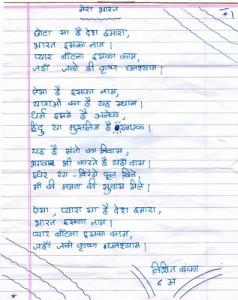 मेरा भारत
छोटा सा है देश हमारा,
भारत इसका नाम।
प्यार बाँटना इसका काम,
जहाँ जन्मे श्री कृष्ण घनश्याम।
ऐसा है इसका नाम,
यह स्थान।
धर्म इसमें है अनेक,
हिंदू या मुसलिम है एक।
यह है संतो का निवास,
भगवान भी करते हैं यहाँ वास।
इधर रंग-बिरंगे फूल खिले,
माँ की ममता की सुवास मिले।
ऐसा, प्यारा सा है देश हमारा,
भारत इसका नाम।
प्यार बाँटना इसका काम,
जहाँ जन्मे कृष्ण घनश्याम।
८ अ